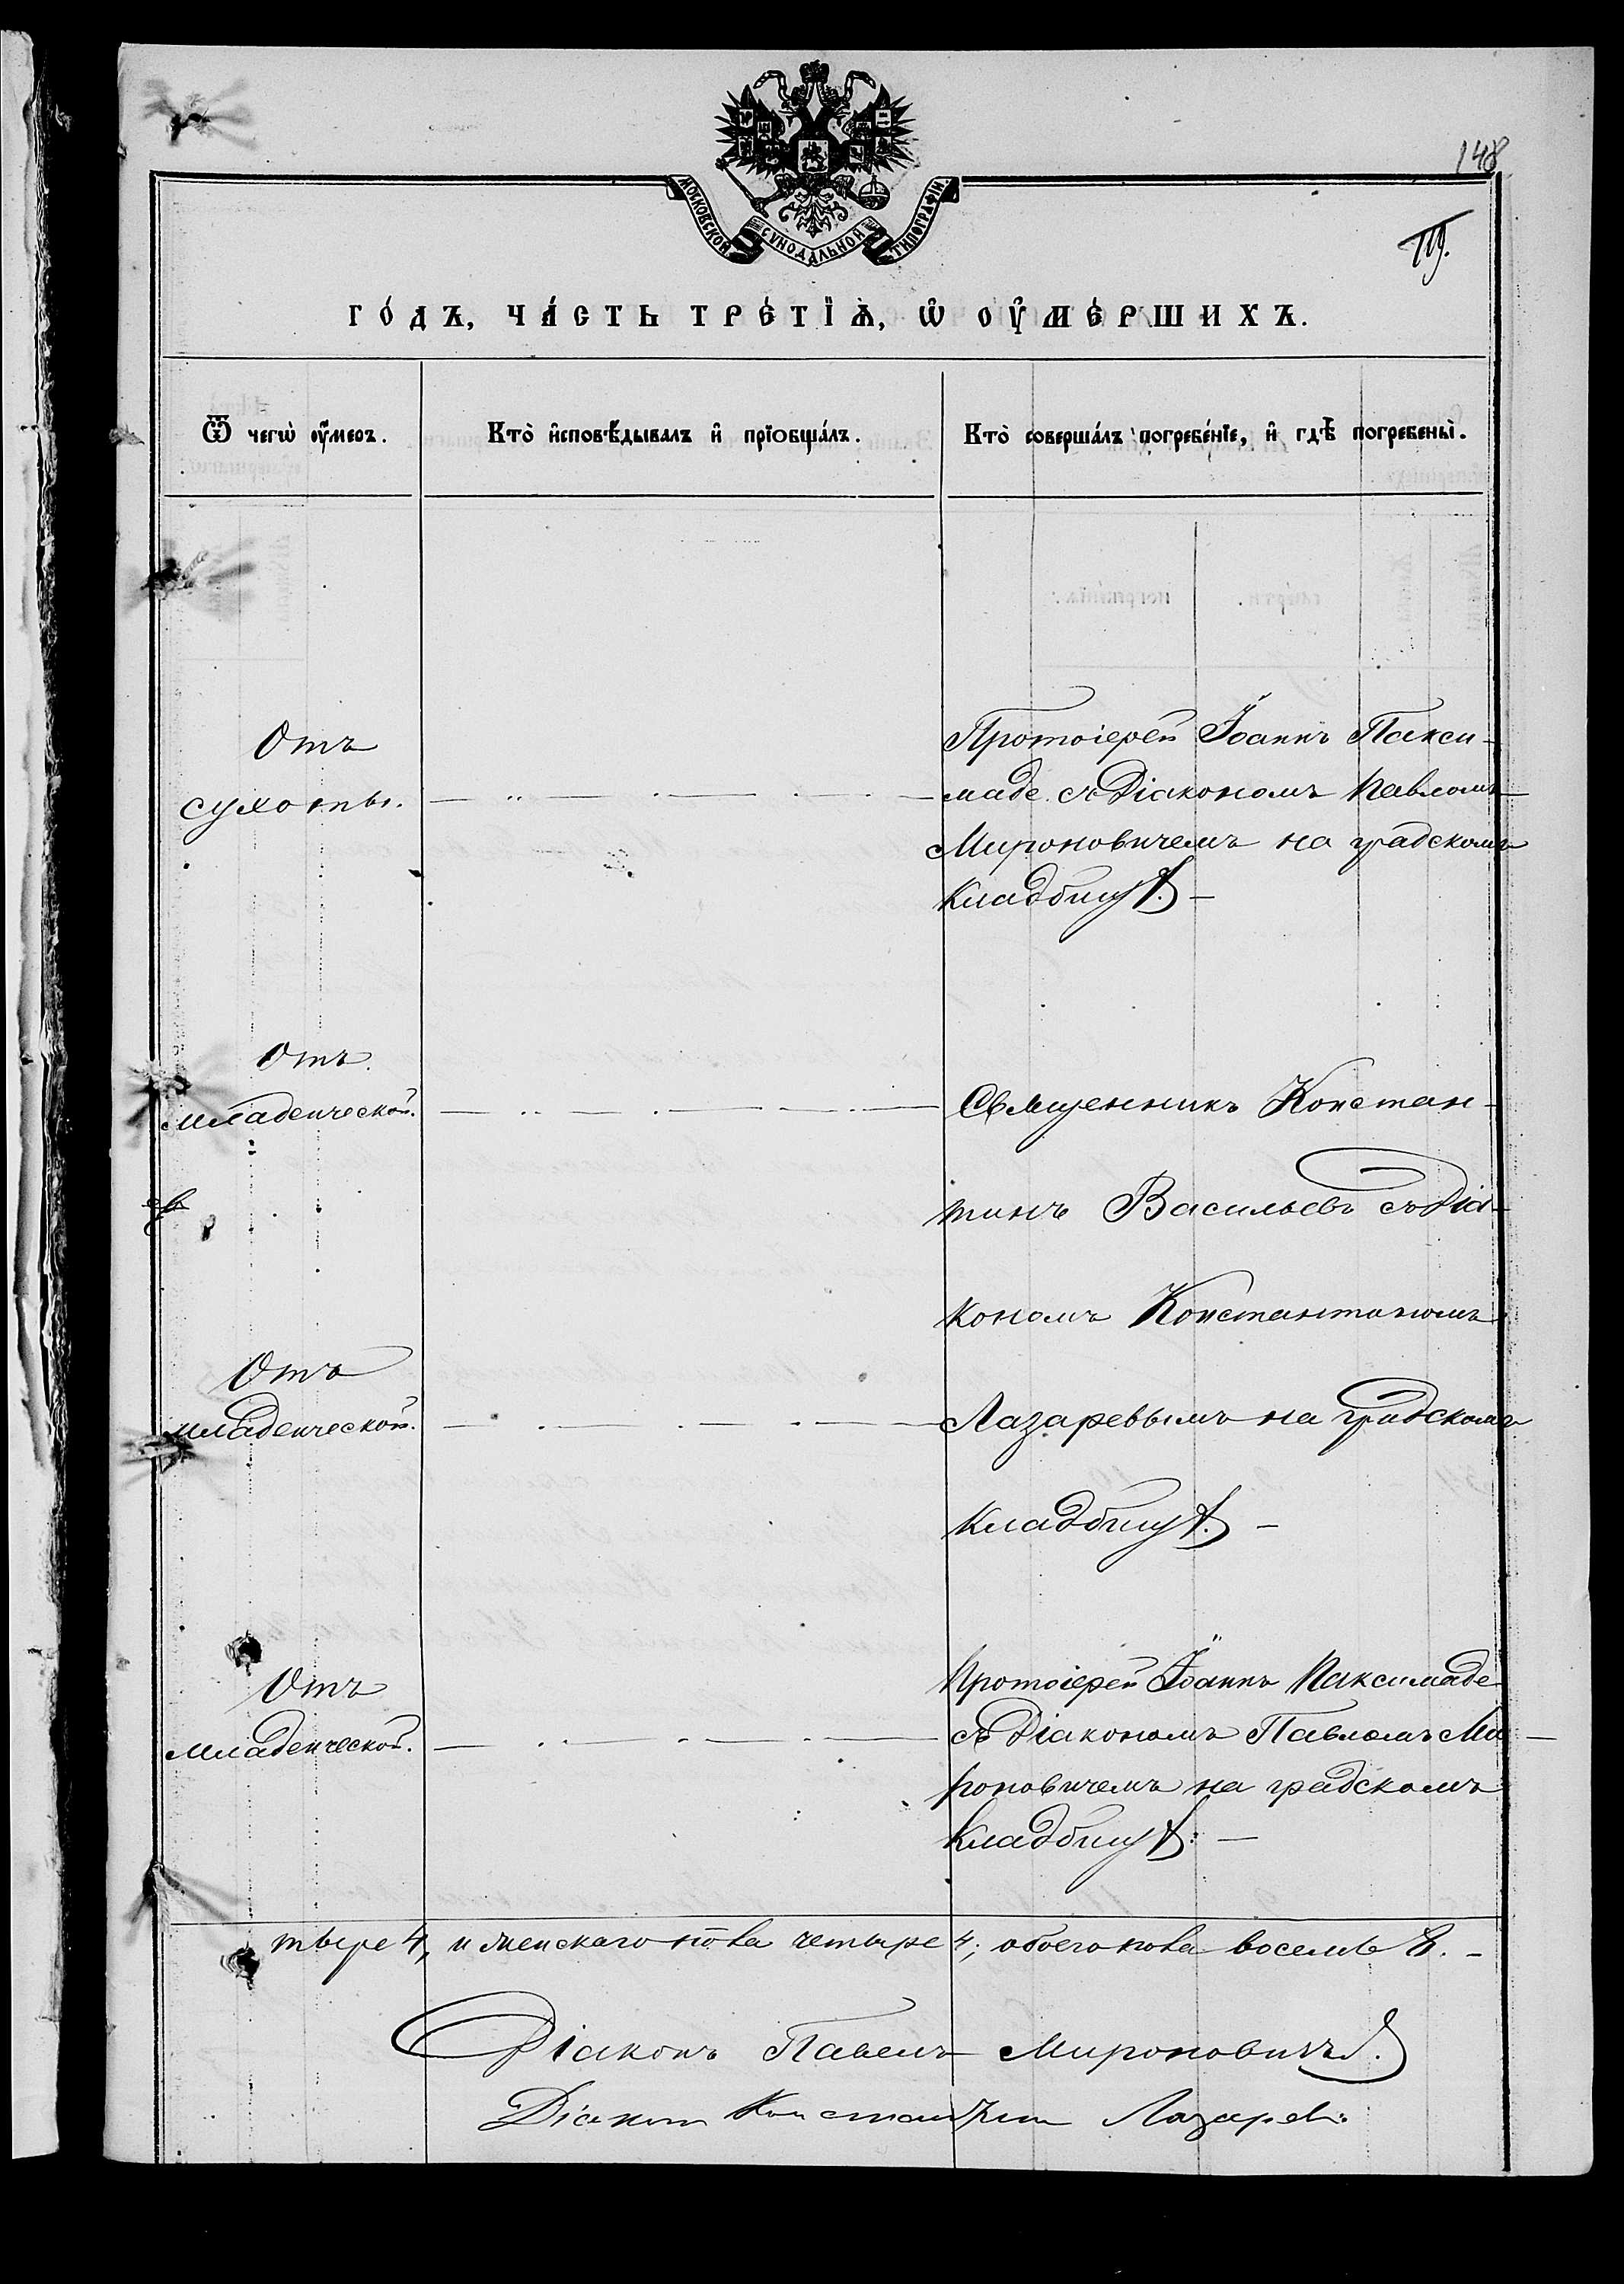 148
119.
МОСКОВСКОЙ СѴНОДАЛЬНОЙ ТИПОГРАФІИ.
ГО́ДЪ, ЧА́СТЬ ТРЕ́ТІѦ, Ѡ҆ ОУ҆МЕ́РШИХЪ.
Ѿ чегѡ̀ оу҆́меръ.
Кто̀ и҆сповѣ́дывалъ и҆ прїобща́лъ.
Кто̀ соверша́лъ погребе́нїе, и҆ гдѣ̀ погребены̀.
Отъ
сухоты.
Протоіерей Іоаннъ Пакси-
маде съ Діакономъ Павломъ
Мироновичемъ на градскомъ
кладбищѣ. -
Отъ
младенческой.
Священникъ Констан-
тинъ Васильевъ съ Діа-
кономъ Константиномъ
Отъ
младенческой.
Лазаревымъ на градскомъ
кладбищѣ. -
Отъ
младенческой.
Протоіерей Іоаннъ Паксимаде
съ Діакономъ Павломъ Ми-
роновичемъ на градскомъ
кладбищѣ. -
тыре 4, и женскаго пола четыре 4; обоего пола восемь 8. -
Діаконъ Павелъ Мироновичъ.
Діаконъ Константинъ Лазаревъ